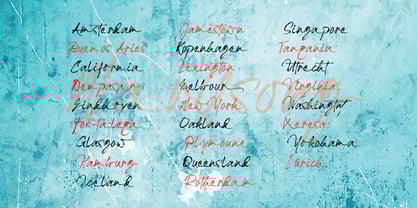 Amsterdam
Buenos Aries
California
Denpasar
Eindhoven
Glasgow
Hamburg
Iceland
Jamestown
Kopenhagen
Lexington
New York
Oakland
Plymoune
Queensland
Rotherdam
Singapore
Utrecht
Virginia
Xeresa
Yokohama
Zurich